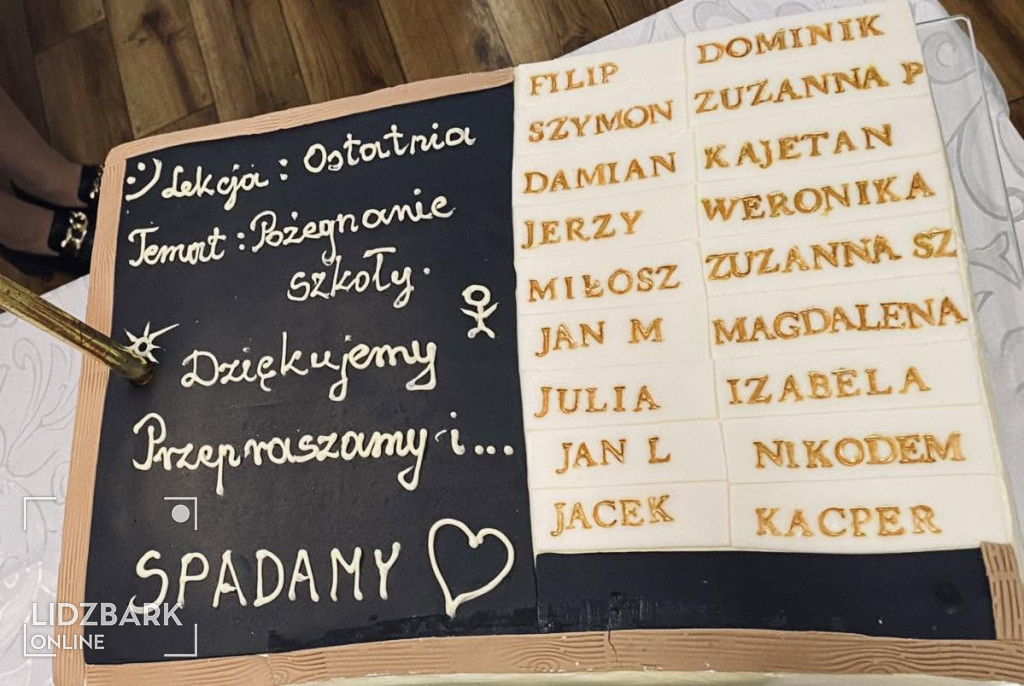 Lekcja : Ostatnia
Temat : Pożegnanie
szkoły.
Dziękujemy
Przepraszamy i...
SPADAMY
FILIP
SZYMON
DAMIAN
JERZY
MIŁOSZ
JAN M
JULIA
JAN L
JACEK
DOMINIK
ZUZANNA P
KAJETAN
WERONIKA
ZUZANNA SZ
MAGDALENA
IZABELA
NIKODEM
KACPER
LIDZBARK
ONLINE